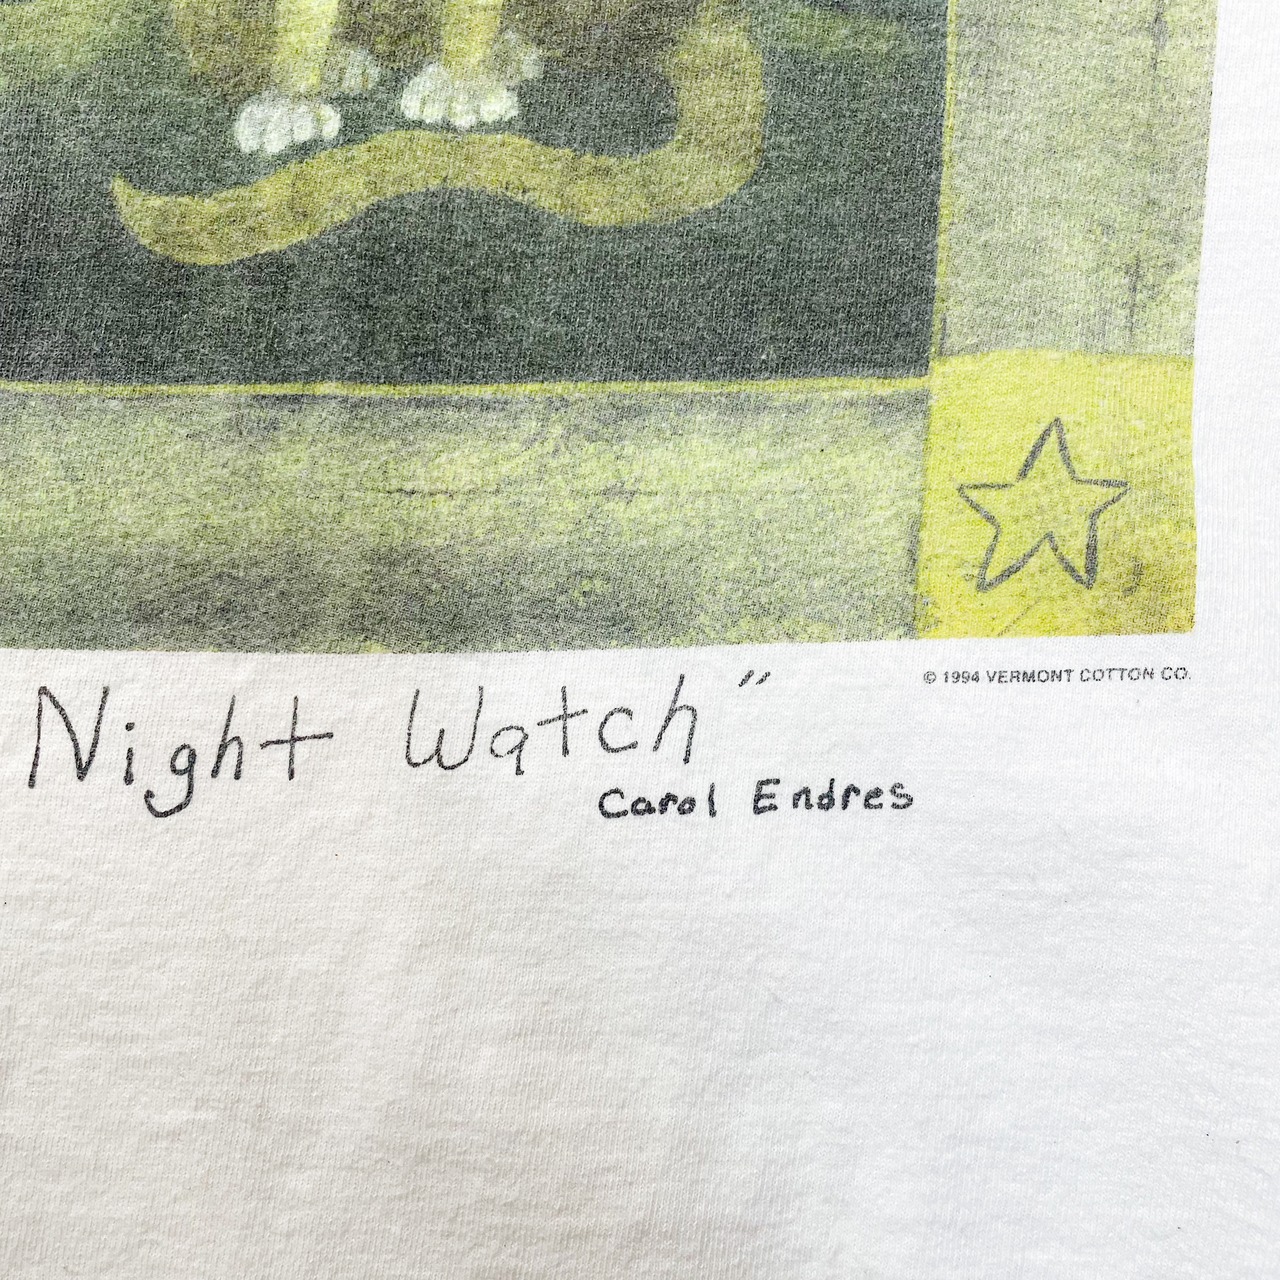 © 1994 VERMONT COTTON CO.
Night Watch"
Carol Endres